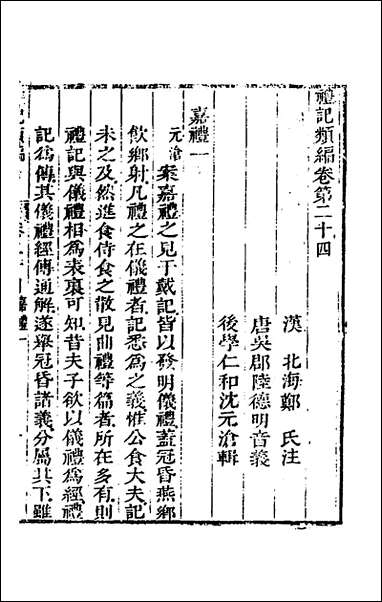 禮記類編卷第二十四
漢 北海鄭 氏注
唐吳郡陸德明音義
後學仁和沈元滄輯
嘉禮一
元滄案嘉禮之見于戴記皆以發明儀禮蓋冠昏燕鄉
飲鄉射凡禮之在儀禮者記悉爲之義惟公食大夫記
未之及然進食侍食之散見曲禮等篇者所在多有則
禮記與儀禮相爲表裏可知昔夫子欲以儀禮爲經禮
記爲傳其儀禮經傳通解遂舉冠昏諸義分屬其下雖